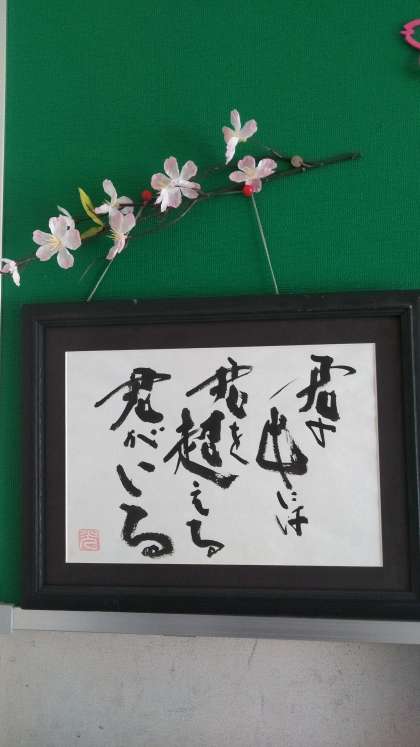 君の中には
君を超える
君がいる